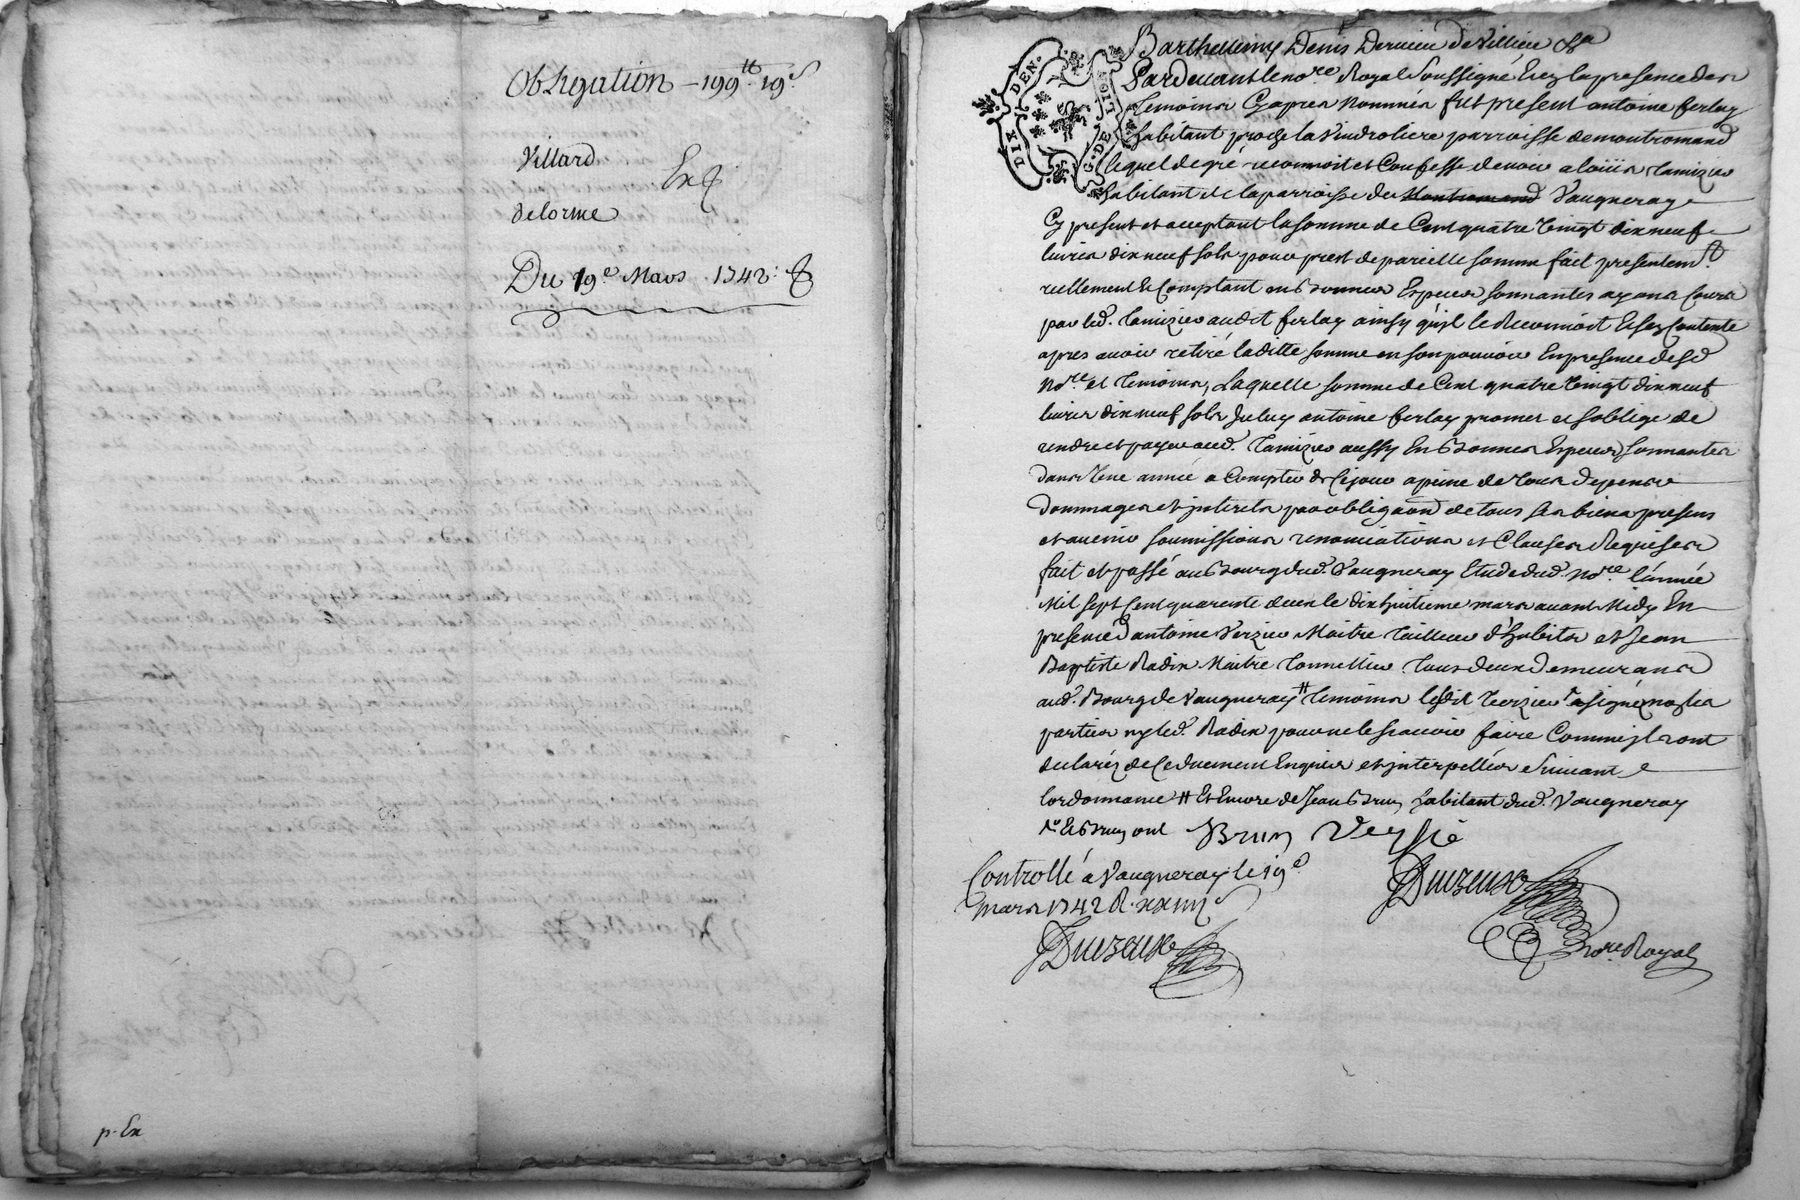 Obligation - 199 tt 19 s
Villard
Ex
delorme
Du 19e Mars 1742
p. Ex
Barthelemy Denis Dernier de Villieu
DIX DEN.
G. DE LION
Pardevant le no.re Royal Soussigné Et en la presence des
temoins Cy apres nommés fut present antoine ferlay
habitant proche la Vindroliere parroisse de montromand
lequel de gré reconnoit et Confesse devoir a loüis tamizier
habitant de la parroisse de Montromand Vaugneray
Cy present et acceptant la somme de Cent quatre Vingt dix neuf
livres dix neuf sols pour prest de pareille somme fait presentem.t
reellement et Comptant en Bonnes Especes sonnantes ayans Cours
par led. tamizier audit ferlay ainsy qu'il le Reconnoit Et sen Contente
apres avoir retiré laditte somme en son pouvoir En presence desd
No.re et temoins, Laquelle somme de Cent quatre Vingt dix neuf
livres dix neuf sols Iceluy antoine ferlay promet et soblige de
rendre et payer aud. tamizier aussy En Bonnes Especes sonnantes
dans Une année a Compter de Cejour a peine de tous depens
dommages et jnterets par obligaon de tous ses biens presens
et avenir soumissions renonciations et Clauses Requises
fait et passé au Bourg dud. Vaugneray Etude dud. No.re l'année
Mil sept Cent quarente deux le dix huitieme mars avant Midy En
presence d'antoine Verzier Maitre tailleur d'habits et Jean
Baptiste Radix Maitre tonnellier tous deux demeurans
aud. Bourg de Vaugneray # temoins ledit Verzier a signé non les
parties ny led. Radix pour ne le scavoir faire Comme jls ont
declaréz de Ce duement Enquis et jnterpellés Suivant
lordonnance # Et Encore de Jean Brun habitant dud. Vaugneray
Et Brun ont Brun Veyssié
Controllé a Vaugneray le 19e
mars 1742 R. xxiiij s
Duezeuxe
Duezeuxe
No.re Royal